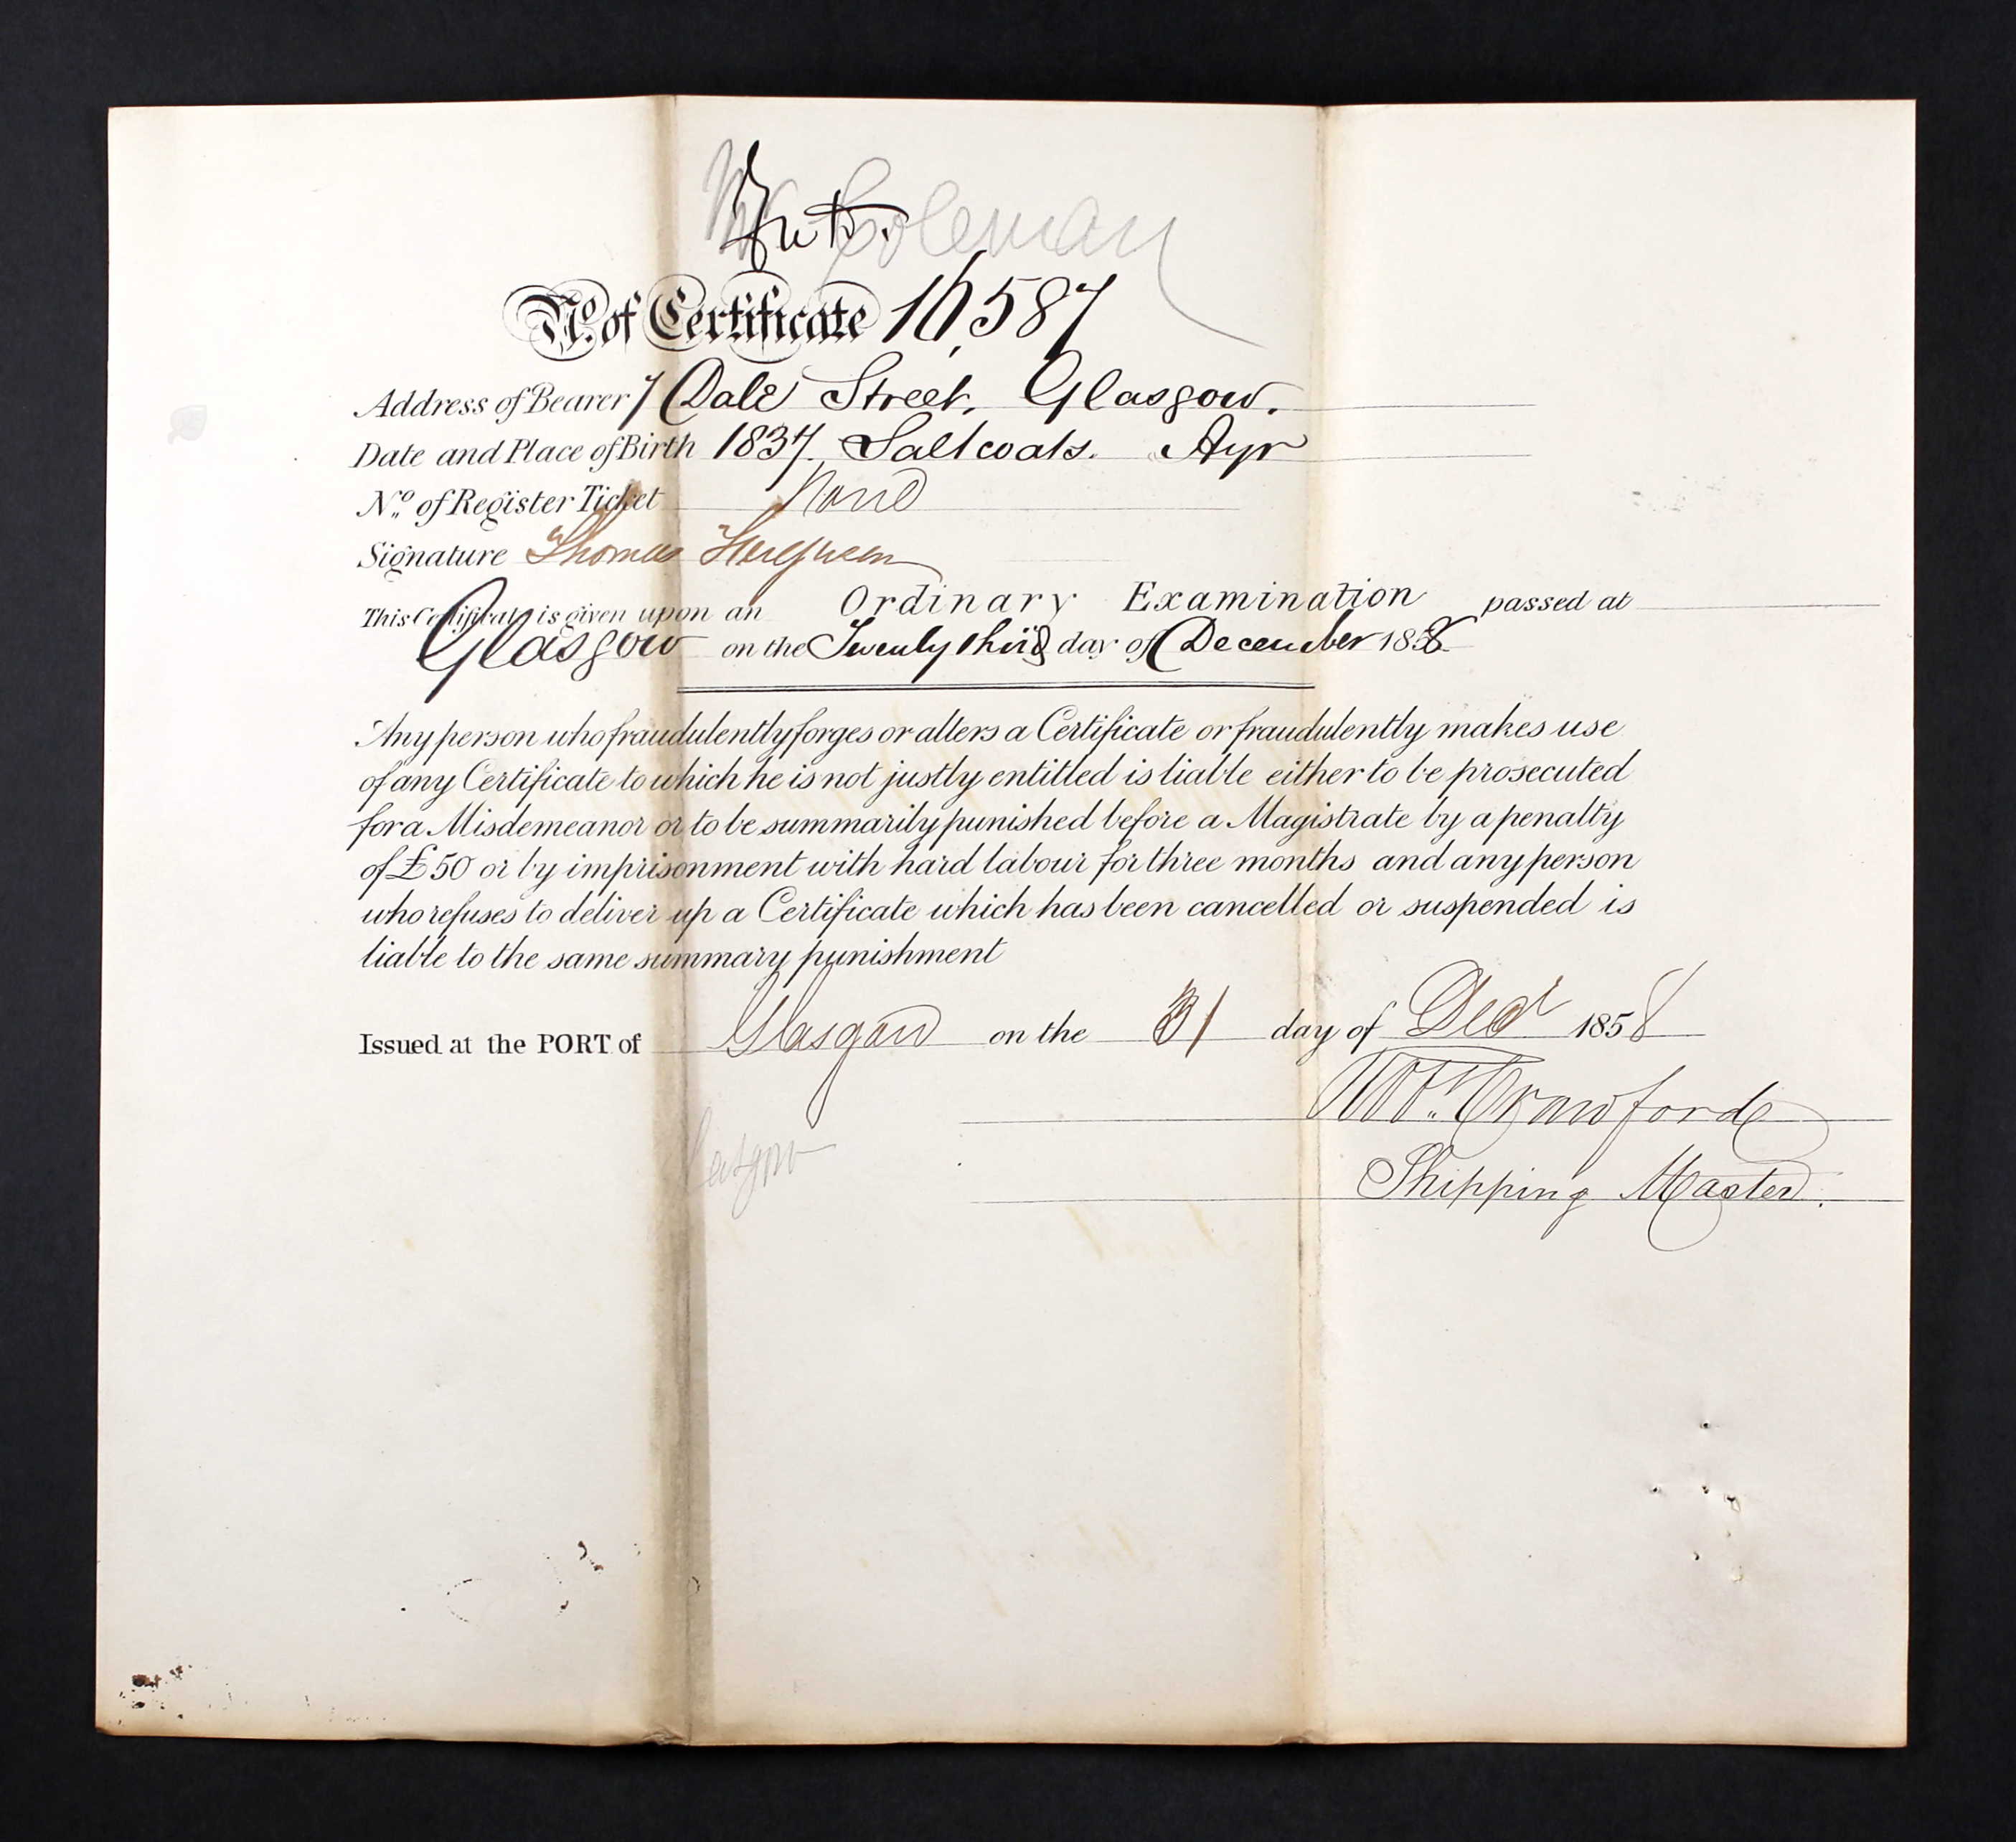 Coleman
No. of Certificate 16,587
Address of Bearer 7 Dale Street, Glasgow.
Date and Place of Birth 1837. Saltcoats. Ayr
No. of Register Ticket None
Signature Thomas Ferguson
This Certificate is given upon an Ordinary Examination passed at
Glasgow on the Twenty third day of December 1858
Any person who fraudulently forges or alters a Certificate or fraudulently makes use
of any Certificate to which he is not justly entitled is liable either to be prosecuted
for a Misdemeanor or to be summarily punished before a Magistrate by a penalty
of £50 or by imprisonment with hard labour for three months and any person
who refuses to deliver up a Certificate which has been cancelled or suspended is
liable to the same summary punishment
Issued at the PORT of Glasgow on the 31 day of Decr 1858
Crawford
Shipping Master.